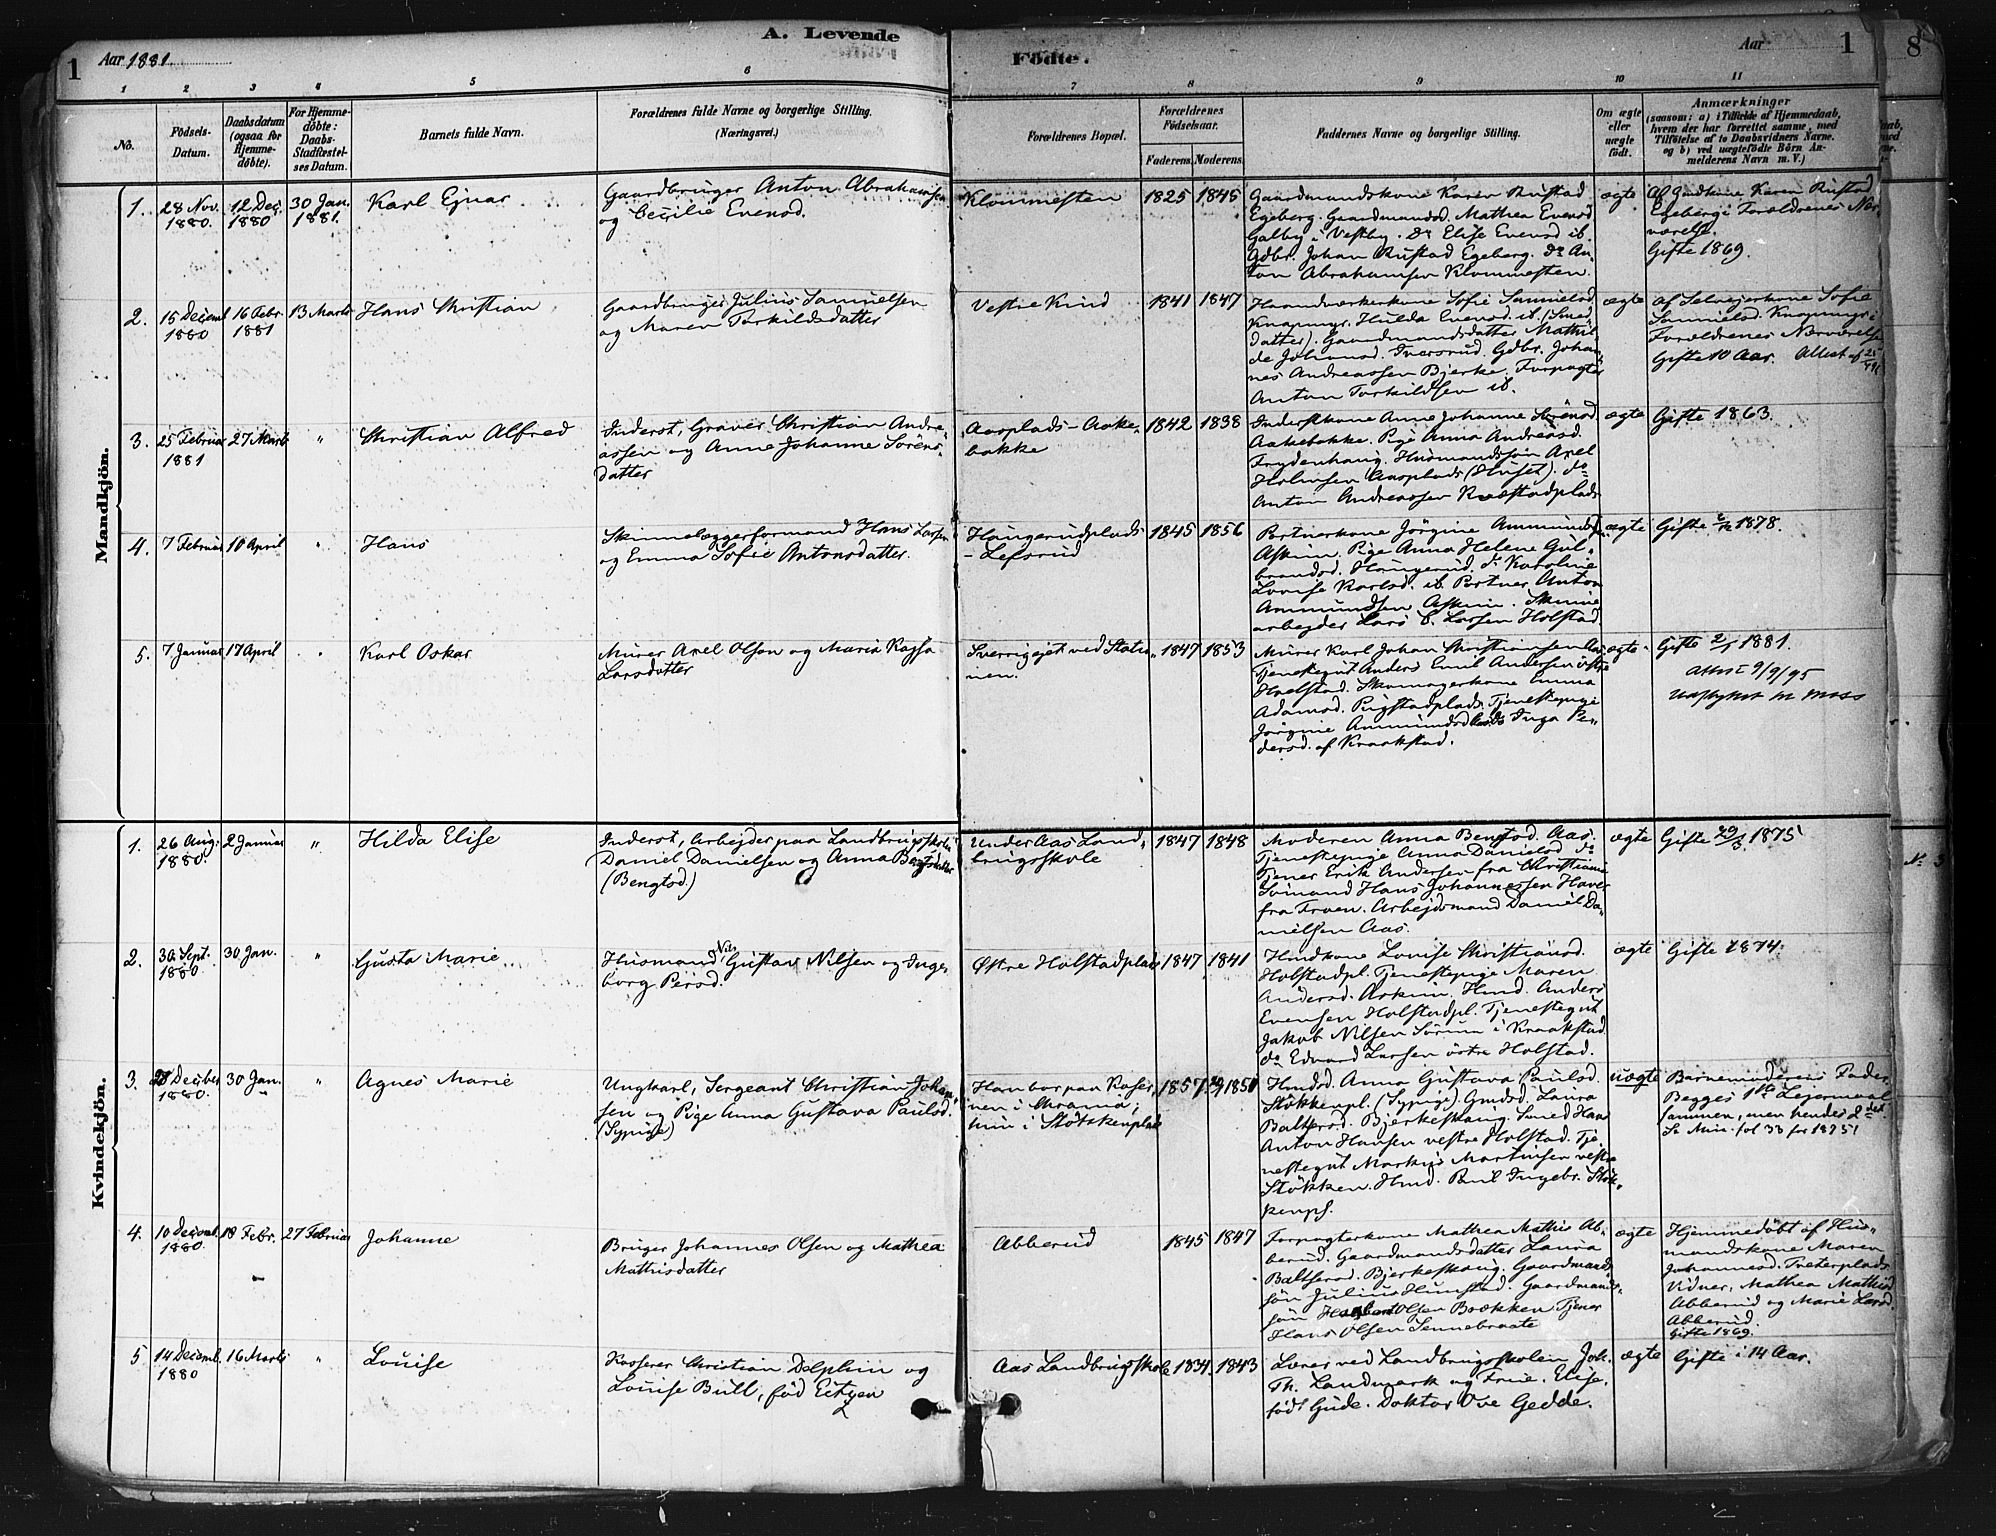 1 Aar 1881. A. Levende
Fødte. Aar 1
8
1 2 3 4 5 6
7 8 9 10 11
No.
Födsels-
Datum.
Daabsdatum
(ogsaa for
Hjemme-
døbte).
For Hjemme-
døbte:
Daabs-
Stadfæstel-
ses Datum.
Barnets fulde Navn.
Forældrenes fulde Navne og borgerlige Stilling.
(Næringsvei.)
Forældrenes Bopæl.
Forældrenes
Födselsaar.
Faderens. Moderens.
Faddernes Navne og borgerlige Stilling.
Om ægte
eller
uægte
født.
Anmærkninger
(saasom: a) i Tilfælde af Hjemmedaab,
hvem der har forrettet samme, med
Tilföielse af to Daabsvidners Navne.
og b) ved uægtefödte Börn An-
melderens Navn m. V.)
Mandkjön.
1.
28 Nov.
1880.
12 Dec.
1880
30 Jan.
1881.
Karl Ejnar
Gaardbruger Anton Abrahamsen
og Cecilie Evensd.
Klommesten
1825 1845
Gaardmandskone Karen Rustad
Egeberg. Gaardmandsd. Mathea Evensd
Galby i Vestby. Do Elise Evensd ib.
Gdbr. Johan Rustad Egeberg. Do An-
ton Abrahamsen Klommesten.
ægte
Af Gmdkone Karen Rustad
Egeberg i Forældrenes Nær-
værelse.
Gifte 1869.
2.
15 Decemb
1880
16 Febr.
1881
13 Marts
Hans Christian
Gaardbruger Julius Samuelsen
og Maren Torkildsdatter
Vestre Kind
1841 1847
Haandværkerkone Sofie Samuelsd.
Knapmyr. Hulda Evensd. ib. (Smed
datter). Gaardmandsdatter Mathil
de Johansd. Iversrud. Gdbr. Johan-
nes Andreassen Bjerke. Forpagter
Anton Torkildsen ib.
ægte
af Selvejerkone Sofie
Samuelsd. Knapmyr i
Forældrenes Nærværelse
Gifte 10 Aar. Attest af
3.
25 Februar
1881
27 Marts
"
Christian Alfred
Inderst, Graver Christian Andre-
assen og Anne Johanne Sörens-
datter
Aasplads - Aake-
bakke
1842 1838
Inderstkone Anne Johanne Sörensd
Aakebakke. Pige Anna Andreasd.
Frydenhaug. Husmandssön Axel
Holmsen Aasplads (Huset). do
Anton Andreassen Kvæstadplads
ægte
Gifte 1863.
4.
7 Februar
10 April
"
Hans
Skinnelæggerformand Hans Larsen
og Emma Sofie Antonsdatter.
Haugerudplads
- Lefsrud
1845 1856
Portnerkone Jörgine Ammundsd.
Askim. Pige Anna Helene Gul-
brandsd. Haugerud. do Karoline
Lovise Karlsd. ib. Portner Anton
Ammundsen Askim. Skinne
arbejder Lars L. Larsen Holstad.
ægte
Gifte 1878.
5.
7 Januar
17 April
"
Karl Oskar
Murer Axel Olsen og Maria Kajsa
Larsdatter
Sverrigejet ved Statio-
nen.
1847 1853
Murer Karl Johan Christiansen
Tjenestegut Anders Emil Andersen östre
Holstad. Skomagerkone Emma
Adamsd. Rustadplads. Tjenestepige
Jörgine Ammundsd. Inga Pe-
dersd. af Kraakstad.
ægte
Gifte 2/1 1881.
Attest 9/9/95
Moss
Kvindekjön.
1.
26 Aug.
1880.
2 Januar
"
Hilda Elise
Inderst, Arbejder paa Landbrugsskolen
Daniel Danielsen og Anna Bengtsdatter
(Bengtsd.)
Under Aas Land-
brugsskole
1847 1848
Moderen Anna Bengtsd. Aas.
Tjenestepige Anna Danielsd. do
Tjener Erik Andersen fra Christiania
Sömand Hans Johannessen
fra Froen. Arbejdsmand Daniel Da-
nielsen Aas.
ægte
Gifte 29/3 1875
2.
30 Sept.
1880
30 Jan.
"
Gusta Marie
Husmand Nils Gustav Nilsen og Inge-
borg Persd.
Östre Holstadplads
1847 1841
Hmdkone Lovise Christiansd.
Holstadpl. Tjenestepige Maren
Andersd. Askim. Hmd. Anders
Evensen Holstadpl. Tjenestegut
Jakob Nilsen Sörum i Kraakstad.
do Edvard Larsen östre Holstad.
ægte
Gifte 1874.
3.
Decber
1880.
30 Jan.
"
Agnes Marie
Ungkarl, Sergeant Christian Johan-
sen og Pige Anna Gustava Paulsd.
(Sypige)
Han bor paa Kaser-
nen i Chrania;
hun i Stökkenplads
1857
Hmdsd. Anna Gustava Paulsd.
Stökkenpl. (Sypige). Gmdsd. Laura
Baltsersd. Bjerkeskaug. Smed Hans
Anton Hansen vestre Holstad. Tje-
nestegut Markus Martinsen vestre
Stökken. Hmd. Paul Ingebr. Stök-
kenpl.
uægte
Barnemoderens Fader.
Begges 1ste Lejermaal
sammen, men hendes 2det
4.
10 Decemb.
1880.
18 Febr.
27 Februar
Johanne
Bruger Johannes Olsen og Mathea
Mathisdatter
Abberud
1845 1847
Forpagterkone Mathea Mathis Ab-
berud. Gaardmandsdatter Laura
Baltsersd. Bjerkeskaug. Gaardmands
sön Julius Hunstad. Gaardmands-
sön Olsen Brækken. Tjener
Hans Olsen Sennebraate
ægte
Hjemmedöbt af Hus-
mandskone Maren
Johannesd. Tveterplads.
Vidner, Mathea Mathisd.
Abberud og Marie Larsd.
Abberud.
Gifte 1869.
5
14 Decemb.
1880
16 Marts
"
Lovise
Kasserer Christian Delphin og
Lovise Bull, född Eitzen
Aas Landbrugsskole
1834. 1843
Lærer ved Landbrugsskolen Joh.
Th. Landmark og Frue. Elise,
född Gude. Doktor Ove Gedde.
ægte
Gifte i 14 Aar.